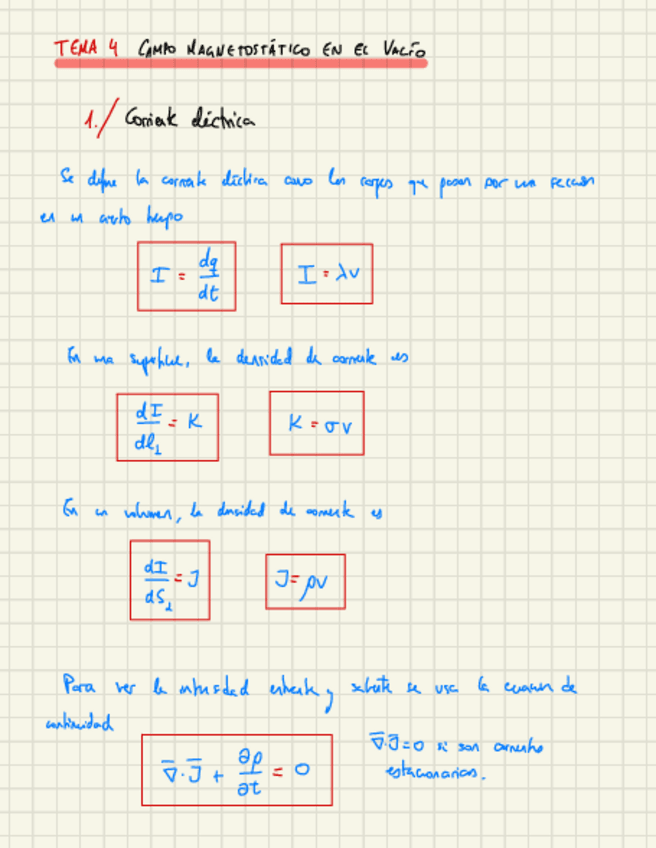 TEMA 4 CAMPO MAGNETOSTÁTICO EN EL VACÍO
1./ Corriente eléctrica
Se define la corriente eléctrica como las cargas que pasan por una sección
en un cierto tiempo
I = dq/dt I = λv
En una superficie, la densidad de corriente es
dI/dl⊥ = K K = σv
En un volumen, la densidad de corriente es
dI/dS⊥ = J J = ρv
Para ver la intensidad entrante y saliente se usa la ecuación de
continuidad
∇̄·J̄ + ∂ρ/∂t = 0 ∇̄·J̄ = 0 si son corrientes
estacionarias.